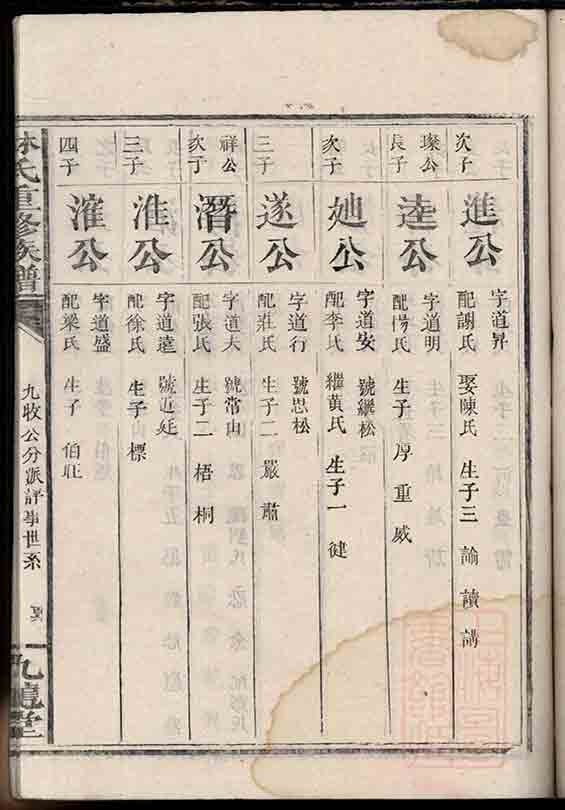 次子
進公
字道昇
配謝氏 娶陳氏 生子三 諭 讀 講
璨公
長子
逵公
字道明
配楊氏 生子 厚 重 威
次子
𨒪公
字道安 號繼松
配李氏 繼黃氏 生子一 健
三子
遂公
字道行 號思松
配莊氏 生子二 嚴 肅
祥公
次子
潛公
字道夫 號常山
配張氏 生子二 梧 桐
三子
淮公
字道遠 號近廷
配徐氏 生子 標
四子
漼公
字道盛
配梁氏 生子 伯旺
林氏重修族譜
九牧公分派評事世系
九龍堂